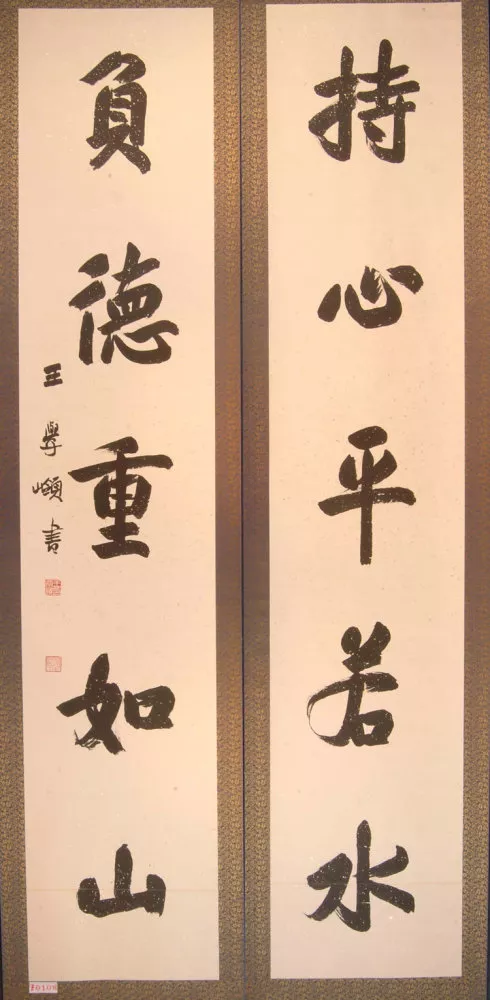 持心平若水
負德重如山
王學嶺書